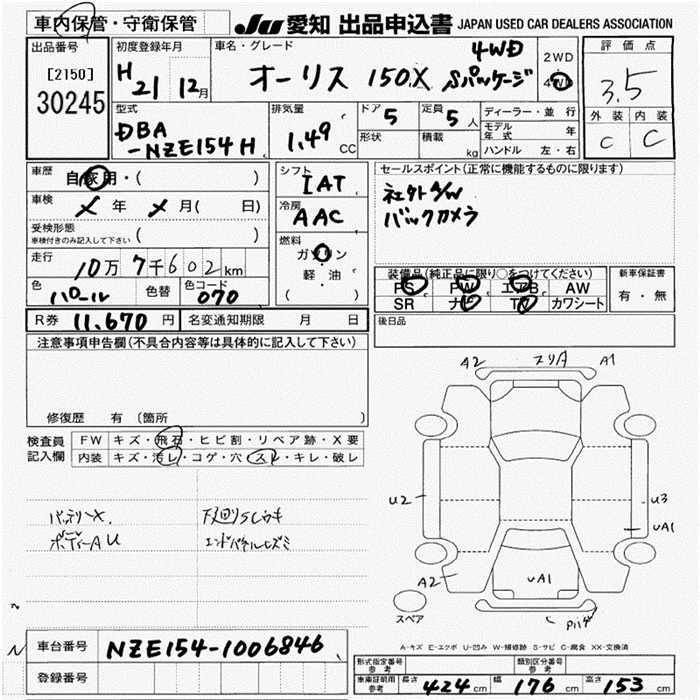 車内保管・守衛保管
JU 愛知 出品申込書 JAPAN USED CAR DEALERS ASSOCIATION
出品番号
[2150]
30245
初度登録年月
H21 12月
車名・グレード
オーリス 150X Sパッケージ 4WD
2WD
4WD
評価点
3.5
外装 内装
C C
型式
DBA
-NZE154H
排気量
1.49 CC
ドア 5
定員 5人
形状
積載 kg
ディーラー・並行
モデル年式 年
ハンドル 左・右
車歴 自家用・( )
車検 〆年 〆月( 日)
受検形態
車検付きのみ記入して下さい ( )
走行 10万7千602km
色 パール 色替 色コード 070
シフト
IAT
冷房
AAC
燃料
ガソリン
軽・油
( )
セールスポイント(正常に機能するものに限ります)
社外A/W
バックカメラ
装備品(純正品に限り○をつけてください)
PS PW エアB AW
SR ナビ TV カワシート
新車保証書
有・無
後日品
R券 11,670円 名変通知期限 月 日
注意事項申告欄(不具合内容等は具体的に記入して下さい)
修復歴 有 〔箇所 〕
検査員
記入欄
FW キズ・飛石・ヒビ割・リペア跡・X要
内装 キズ・汚レ・コゲ・穴・スレ・キレ・破レ
バッテリーX.
ボデーAU
下回りSCウキ
エンドパネルヒズミ
A2 スリA A1
U2
U3
UA1
A2
UA1
スペア
A-キズ E-エクボ U-凹み W-補修跡 S-サビ C-腐食 XX-交換済
車台番号 NZE154-1006846
登録番号
形式指定番号 参考
類別区分番号 参考
車庫証明用 参考 長さ 424cm 幅 176cm 高さ 153cm